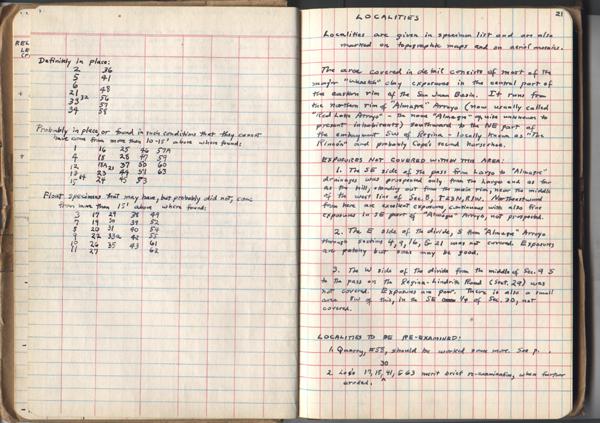 Definitely in place:
2 36
5 41
6 48
21 56
33 57
34 58
Probably in place, or found in such conditions that they cannot
have come from more than 10-15' above where found:
1 16 25 46 57A
4 18 28 47 59
12 18A 37 50 60
13 23 44 51 63
15 24 45 53
Float specimens that may have, but probably did not, come
from more than 15' above where found:
3 17 29 38 49
7 19 30 39 52
8 20 31 40 54
9 22 33a 42 55
10 26 35 43 61
11 27 62
21
LOCALITIES
Localities are given in specimen list and are also
marked on topographic maps and on aerial mosaics.
The area covered in detail consists of most of the
major "Wasatch" clay exposures in the central part of
the eastern rim of the San Juan Basin. It runs from
the northern rim of "Almagre" Arroyo (now usually called
"Red Lake Arroyo" - the name "Almagre" quite unknown to
present inhabitants) southward to the NE part of
the embayment SW of Regina - locally known as "The
Rincón" and probably Cope's second horseshoe.
EXPOSURES NOT COVERED WITHIN THIS AREA:
1. The SE side of the pass from Largo to "Almagre"
drainages was prospected only from the Largo and as far
as the hill, standing out from the main rim, near the middle
of the west line of Sec. 8, T23N, R1W. Northeastward
from here are excellent exposures continuous with also fine
exposures in SE part of "Almagre" Arroyo, not prospected.
2. The E side of the divide, S from "Almagre" Arroyo
through sections 4, 9, 16, & 21 was not covered. Exposures
are patchy but some may be good.
3. The W side of the divide from the middle of Sec. 9 S
to the pass on the Regina-Lindrith Road (Sect. 29) was
not covered. Exposures are poor. There is also a small
area SW of this, in the SE 1/4 of Sec. 30, not
covered.
LOCALITIES TO BE RE-EXAMINED:
1. Quarry, #55, should be worked some more. See p.
30
2. Locs 17, 18, 41, & 63 merit brief re-examination, when further
eroded.